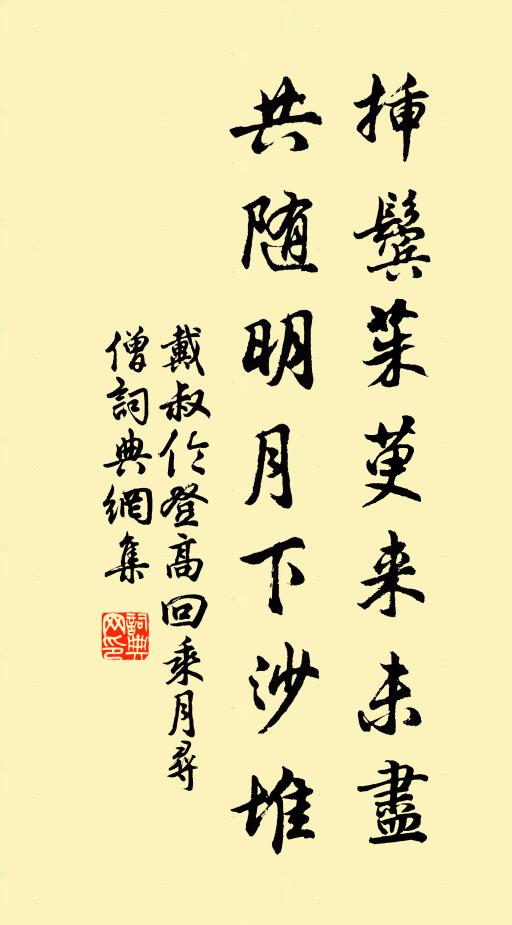 挿鬢茱萸来未盡
共随明月下沙堆
戴叔伦登高回乘月尋
僧詞典網集
詞典网印